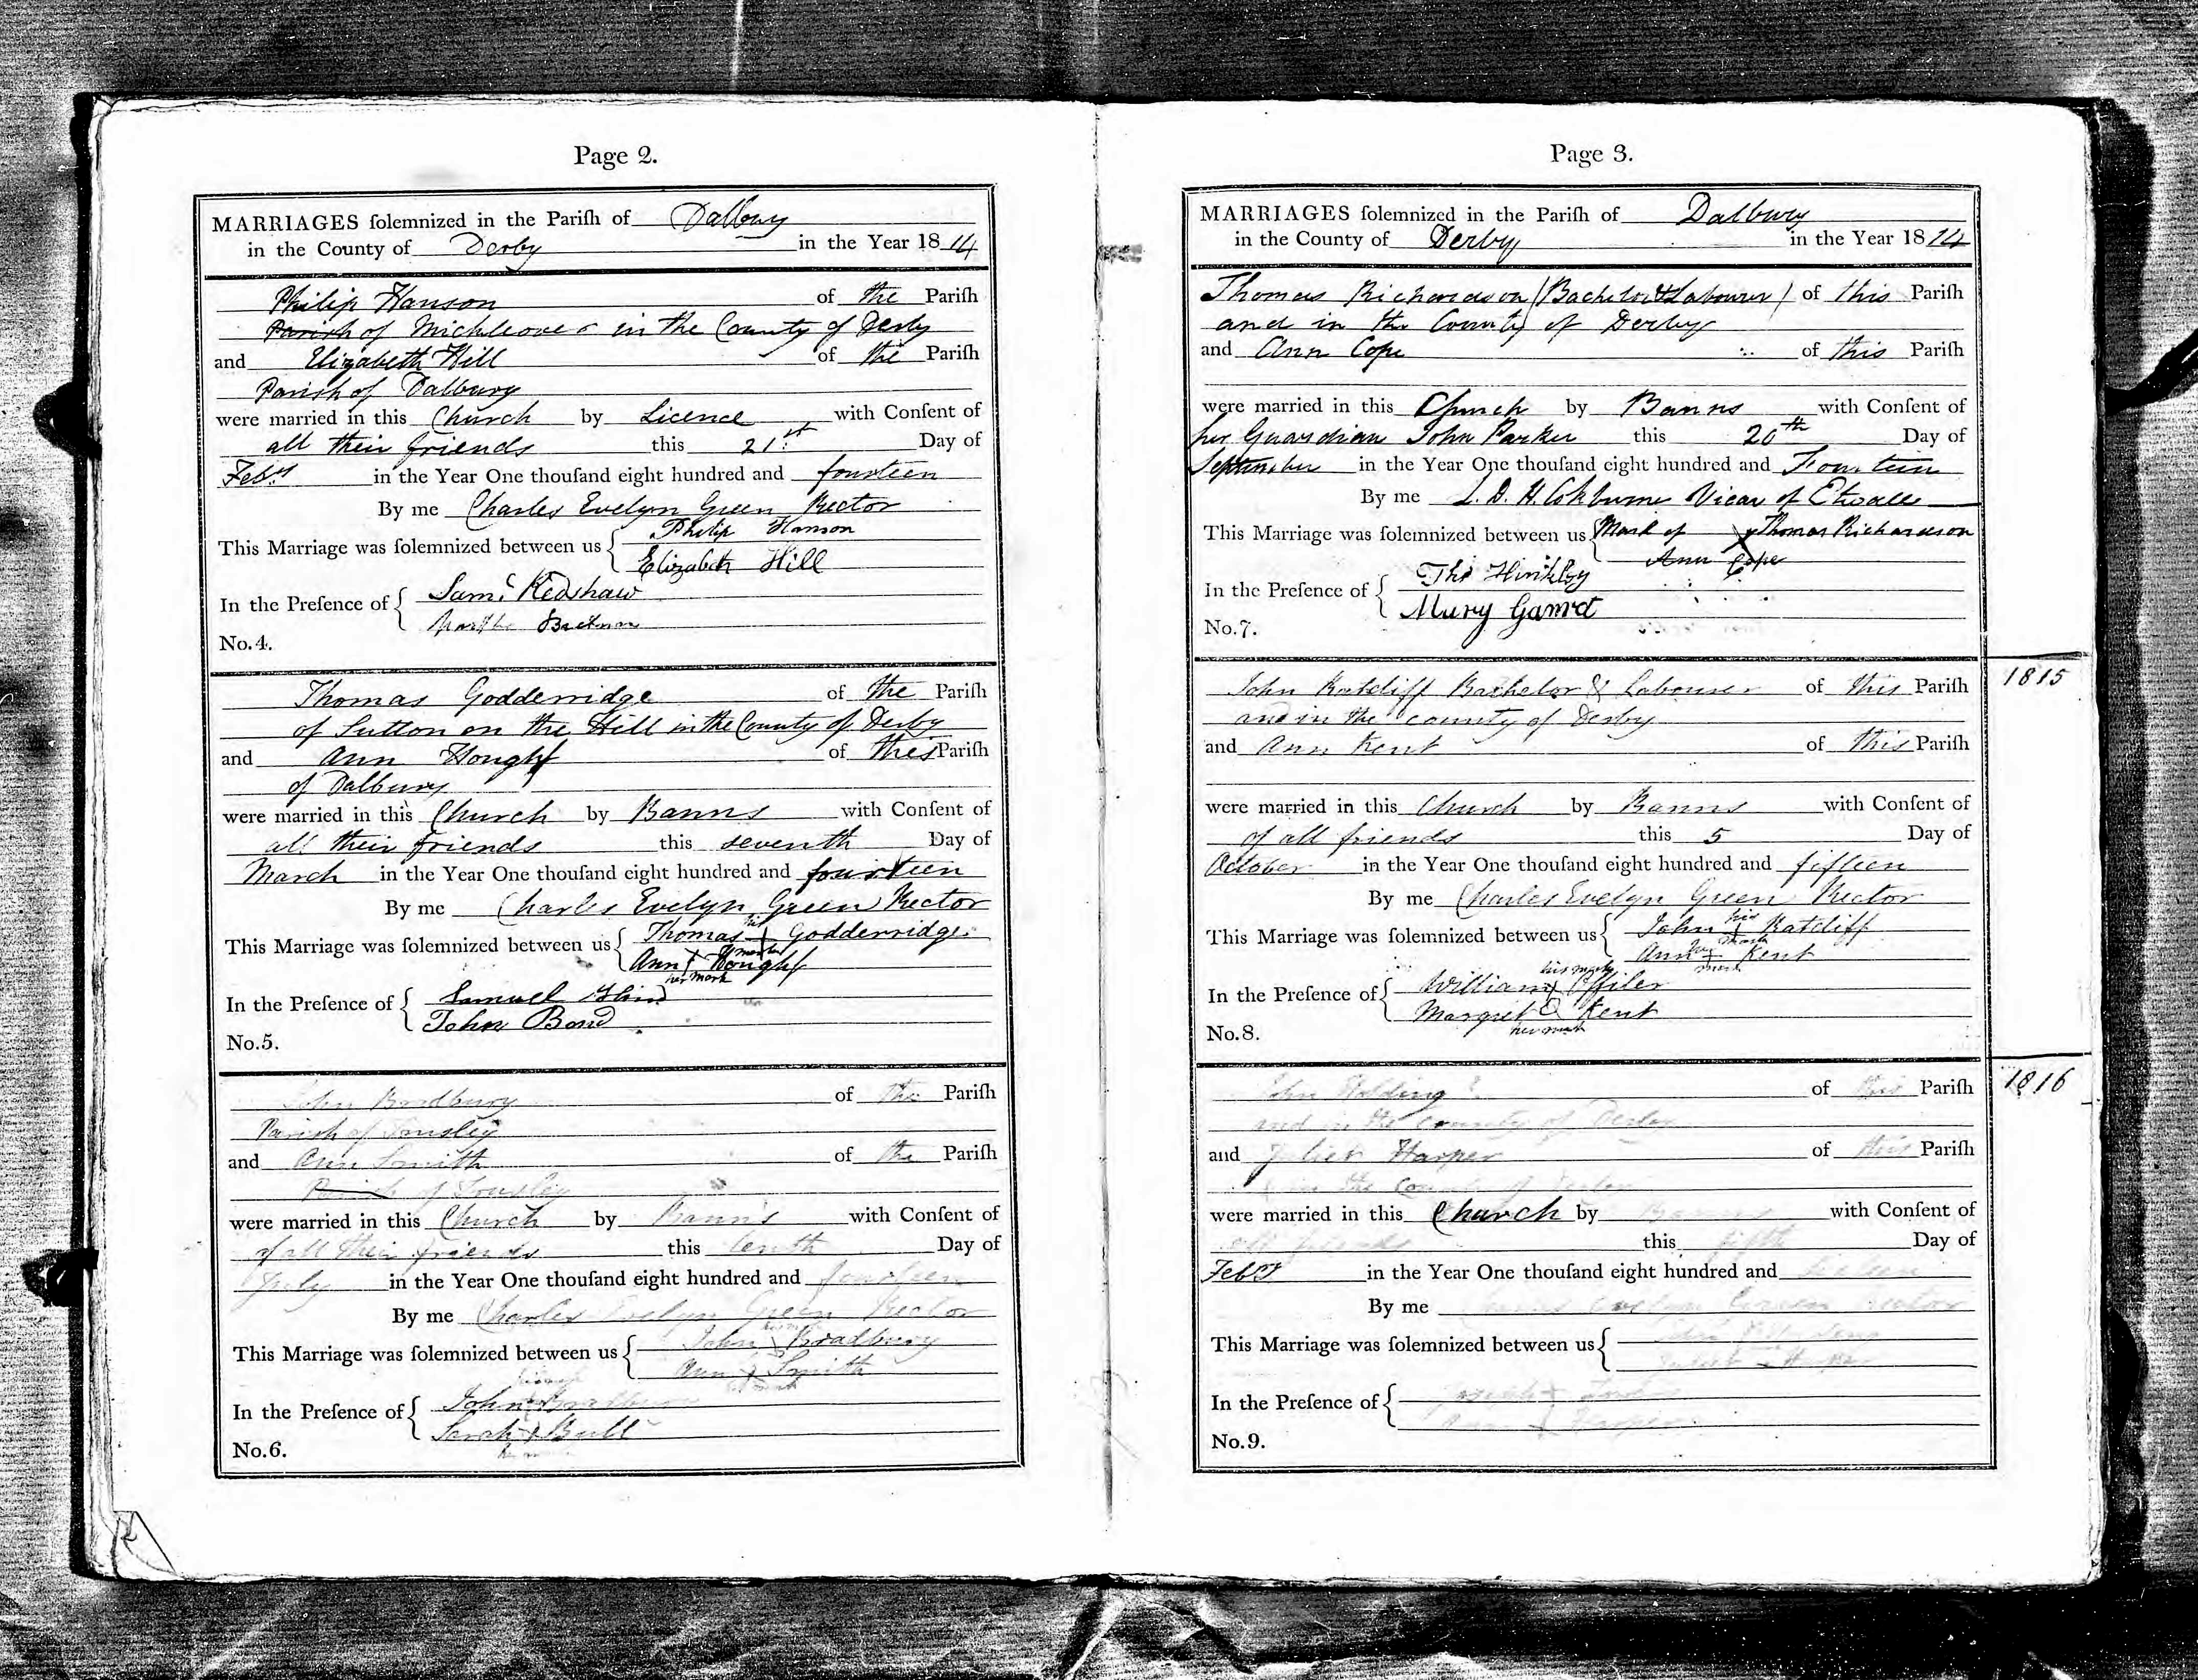 Page 2.
MARRIAGES ſolemnized in the Pariſh of Dalbury
in the County of Derby in the Year 1814
Philip Hanson of the Pariſh
Parish of Mickleover in the County of Derby
and Elizabeth Hill of the Pariſh
Parish of Dalbury
were married in this Church by Licence with Conſent of
all their friends this 21st Day of
Feby in the Year One thouſand eight hundred and fourteen
By me Charles Evelyn Green Rector
This Marriage was ſolemnized between us { Philip Hanson
Elizabeth Hill
In the Preſence of { Saml Redshaw
Martha
No.4.
Thomas Godderridge of the Pariſh
of Sutton on the Hill in the County of Derby
and Ann Hough of this Pariſh
of Dalbury
were married in this Church by Banns with Conſent of
all their friends this seventh Day of
March in the Year One thouſand eight hundred and fourteen
By me Charles Evelyn Green Rector
This Marriage was ſolemnized between us { Thomas his mark Godderridge
Ann X Hough
her mark
In the Preſence of { Samuel
John Bond
No.5.
John Bradbury of the Pariſh
Parish of
and Ann Smith of the Pariſh
Parish of
were married in this Church by Banns with Conſent of
of all their friends this tenth Day of
July in the Year One thouſand eight hundred and fourteen
By me Charles Evelyn Green Rector
This Marriage was ſolemnized between us { John X Bradbury
Ann X Smith
In the Preſence of { John X Bradbury
Sarah X Bull
No.6.
Page 3.
MARRIAGES ſolemnized in the Pariſh of Dalbury
in the County of Derby in the Year 1814
Thomas Richardson (Bachelor & Labourer) of this Pariſh
and in the County of Derby
and Ann Cope of this Pariſh
were married in this Church by Banns with Conſent of
her Guardian John Parker this 20th Day of
September in the Year One thouſand eight hundred and Fourteen
By me Vicar of Etwall
This Marriage was ſolemnized between us { Mark of X Thomas Richardson
Ann Cope
In the Preſence of { Thos Hinkley
Mary
No.7.
1815
John Ratcliff Bachelor & Labourer of this Pariſh
and in the county of Derby
and Ann Kent of this Pariſh
were married in this Church by Banns with Conſent of
of all friends this 5 Day of
October in the Year One thouſand eight hundred and fifteen
By me Charles Evelyn Green Rector
This Marriage was ſolemnized between us { John his + mark Ratcliff
Ann her + mark Kent
In the Preſence of { William his mark X Offiler
Margret O Kent
her mark
No.8.
1816
John Holding of this Pariſh
and in the county of Derby
and Juliet Harper of this Pariſh
in the County of Derby
were married in this Church by Banns with Conſent of
all friends this fifth Day of
Feby in the Year One thouſand eight hundred and
By me Charles Evelyn Green Rector
This Marriage was ſolemnized between us {
In the Preſence of { Joseph +
Ann + Harper
No.9.